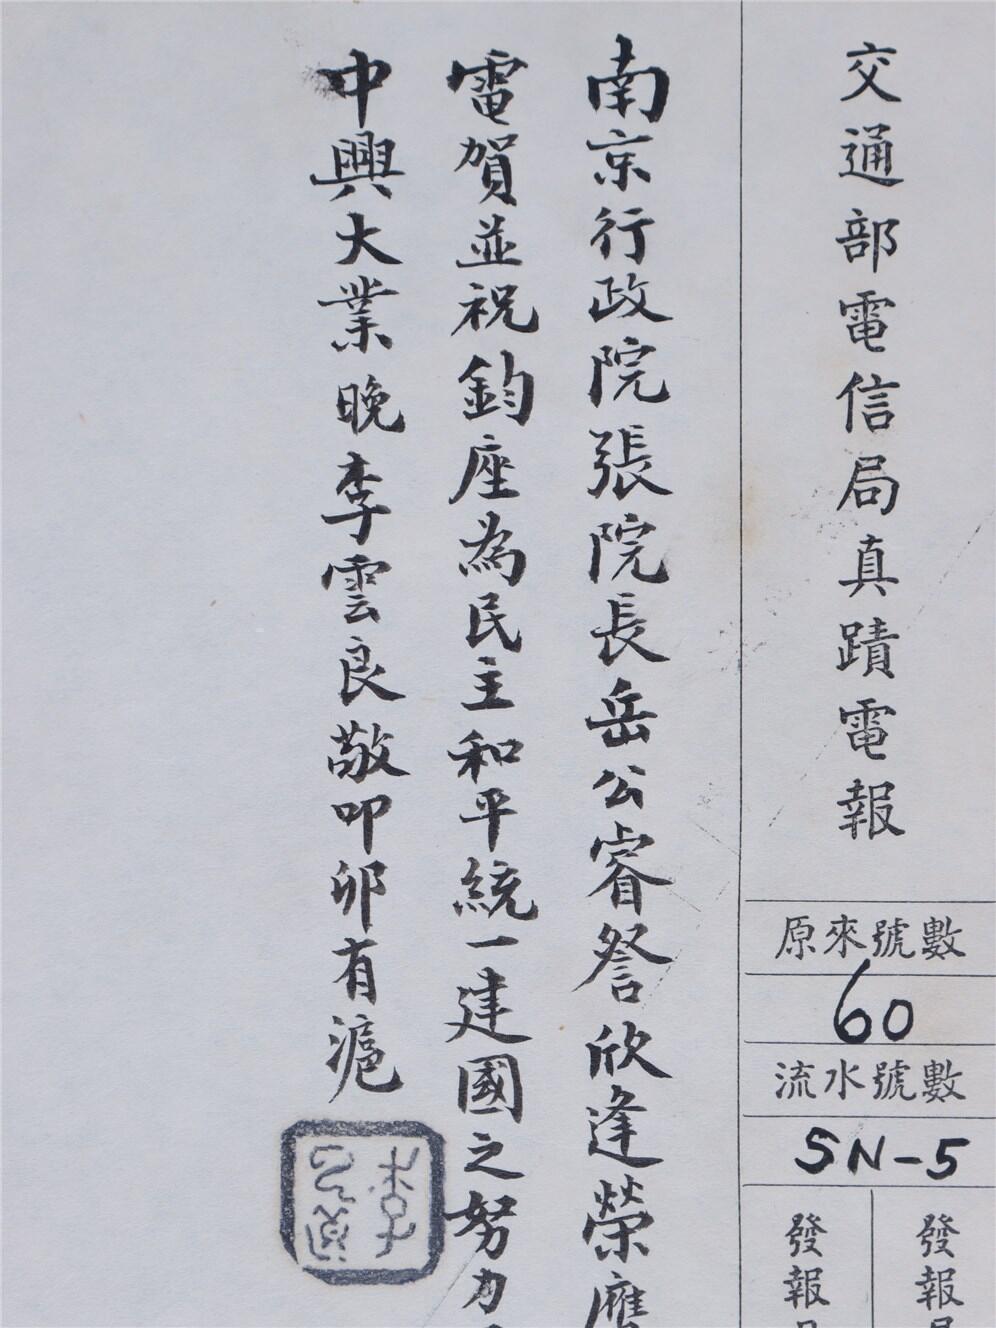 交通部電信局真蹟電報
原來號數
60
流水號數
SN-5
發報
發報
南京行政院張院長岳公睿詧欣逢榮膺
電賀並祝鈞座為民主和平統一建國之努力
中興大業晚李雲良敬叩卯有滬
李雲良